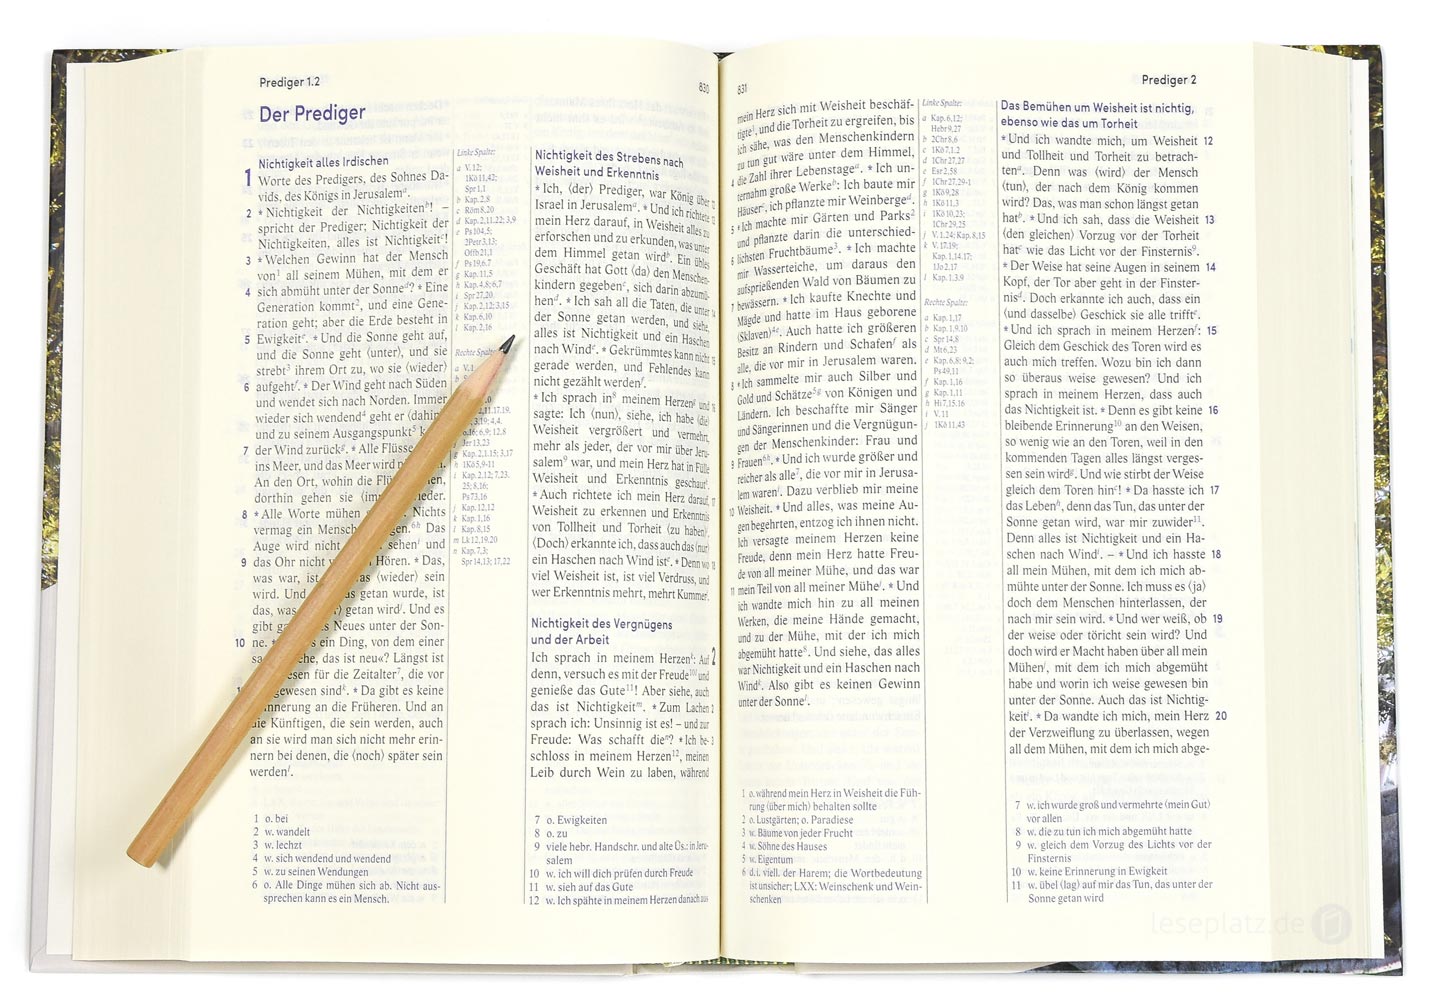 Prediger 1.2
830
Der Prediger
Nichtigkeit alles Irdischen
1 Worte des Predigers, des Sohnes Da-
vids, des Königs in Jerusalemᵃ.
2 *Nichtigkeit der Nichtigkeitenᵇ! –
spricht der Prediger; Nichtigkeit der
Nichtigkeiten, alles ist Nichtigkeitᶜ!
3 *Welchen Gewinn hat der Mensch
von¹ all seinem Mühen, mit dem er
4 sich abmüht unter der Sonneᵈ? *Eine
Generation kommt², und eine Gene-
ration geht; aber die Erde besteht in
5 Ewigkeitᵉ. *Und die Sonne geht auf,
und die Sonne geht ⟨unter⟩, und sie
strebt³ ihrem Ort zu, wo sie ⟨wieder⟩
6 aufgehtᶠ. *Der Wind geht nach Süden
und wendet sich nach Norden. Immer
wieder sich wendend⁴ geht er ⟨dahin⟩
und zu seinem Ausgangspunkt⁵
7 der Wind zurückᵍ. *Alle Flüsse
ins Meer, und das Meer wird
An den Ort, wohin die
dorthin gehen sie
8 *Alle Worte mühen Nichts
vermag ein Mensch ⁶ʰ Das
Auge wird nicht sehenⁱ und
9 das Ohr nicht Hören. *Das,
was war, ist ⟨wieder⟩ sein
wird. Und getan wurde, ist
das, was getan wirdʲ. Und es
gibt Neues unter der Son-
10 ne. ein Ding, von dem einer
das ist neu«? Längst ist
für die Zeitalter⁷, die vor
gewesen sindᵏ. *Da gibt es keine
an die Früheren. Und an
die Künftigen, die sein werden, auch
an sie wird man sich nicht mehr erin-
nern bei denen, die ⟨noch⟩ später sein
werdenˡ.
1 o. bei
2 w. wandelt
3 w. lechzt
4 w. sich wendend und wendend
5 w. zu seinen Wendungen
6 o. Alle Dinge mühen sich ab. Nicht aus-
sprechen kann es ein Mensch.
Linke Spalte:
a V. 12;
1Kö 11,42;
Spr 1,1
b Kap. 2,8
c Röm 8,20
d Kap. 2,11.22; 3,9
e Ps 104,5;
2Petr 3,13;
Offb 21,1
f Ps 19,6.7
g Kap. 11,5
h Kap. 4,8; 6,7
i Spr 27,20
j Kap. 2,12; 3,15
k Kap. 6,10
l Kap. 2,16
Rechte Spalte:
a V. 1
Jer 13,23
g Kap. 2,1.15; 3,17
h 1Kö 5,9-11
i Kap. 2,12; 7,23.
25; 8,16;
Ps 73,16
j Kap. 12,12
k Kap. 1,16
l Kap. 8,15
m Lk 12,19.20
n Kap. 7,3;
Spr 14,13; 17,22
Nichtigkeit des Strebens nach
Weisheit und Erkenntnis
*Ich, ⟨der⟩ Prediger, war König über 12
Israel in Jerusalemᵃ. *Und ich richtete 13
mein Herz darauf, in Weisheit alles zu
erforschen und zu erkunden, was unter
dem Himmel getan wirdᵇ. Ein übles
Geschäft hat Gott ⟨da⟩ den Menschen-
kindern gegebenᶜ, sich darin abzumü-
henᵈ. *Ich sah all die Taten, die unter 14
der Sonne getan werden, und siehe,
alles ist Nichtigkeit und ein Haschen
nach Windᵉ. *Gekrümmtes kann nicht 15
gerade werden, und Fehlendes kann
nicht gezählt werdenᶠ.
*Ich sprach in⁸ meinem Herzenᵍ und 16
sagte: Ich ⟨nun⟩, siehe, ich habe ⟨die⟩
Weisheit vergrößert und vermehrt,
mehr als jeder, der vor mir über Jeru-
salem⁹ war, und mein Herz hat in Fülle
Weisheit und Erkenntnis geschautʰ.
*Auch richtete ich mein Herz darauf, 17
Weisheit zu erkennen und Erkenntnis
von Tollheit und Torheit ⟨zu haben⟩ⁱ.
⟨Doch⟩ erkannte ich, dass auch das ⟨nur⟩
ein Haschen nach Wind istᶜ. *Denn wo 18
viel Weisheit ist, ist viel Verdruss, und
wer Erkenntnis mehrt, mehrt Kummerʲ.
Nichtigkeit des Vergnügens
und der Arbeit
Ich sprach in meinem Herzenᵏ: Auf 2
denn, versuch es mit der Freude¹⁰ˡ und
genieße das Gute¹¹! Aber siehe, auch
das ist Nichtigkeitᵐ. *Zum Lachen 2
sprach ich: Unsinnig ist es! – und zur
Freude: Was schafft dieⁿ? *Ich be- 3
schloss in meinem Herzen¹², meinen
Leib durch Wein zu laben, während
7 o. Ewigkeiten
8 o. zu
9 viele hebr. Handschr. und alte Üs.: in Jeru-
salem
10 w. ich will dich prüfen durch Freude
11 w. sieh auf das Gute
12 w. Ich spähte in meinem Herzen danach aus
831
Prediger 2
mein Herz sich mit Weisheit beschäf-
tigte¹, und die Torheit zu ergreifen, bis
ich sähe, was den Menschenkindern
zu tun gut wäre unter dem Himmel,
4 die Zahl ihrer Lebenstageᵃ. *Ich un-
ternahm große Werkeᵇ: Ich baute mir
Häuserᶜ, ich pflanzte mir Weinbergeᵈ.
5 *Ich machte mir Gärten und Parks²
und pflanzte darin die unterschied-
6 lichsten Fruchtbäume³. *Ich machte
mir Wasserteiche, um daraus den
aufsprießenden Wald von Bäumen zu
7 bewässern. *Ich kaufte Knechte und
Mägde und hatte im Haus geborene
⟨Sklaven⟩⁴ᵉ. Auch hatte ich größeren
Besitz an Rindern und Schafenᶠ als
alle, die vor mir in Jerusalem waren.
8 *Ich sammelte mir auch Silber und
Gold und Schätze⁵ᵍ von Königen und
Ländern. Ich beschaffte mir Sänger
und Sängerinnen und die Vergnügun-
gen der Menschenkinder: Frau und
9 Frauen⁶ʰ. *Und ich wurde größer und
reicher als alle⁷, die vor mir in Jerusa-
lem warenⁱ. Dazu verblieb mir meine
10 Weisheit. *Und alles, was meine Au-
gen begehrten, entzog ich ihnen nicht.
Ich versagte meinem Herzen keine
Freude, denn mein Herz hatte Freu-
de von all meiner Mühe, und das war
11 mein Teil von all meiner Müheʲ. *Und
ich wandte mich hin zu all meinen
Werken, die meine Hände gemacht,
und zu der Mühe, mit der ich mich
abgemüht hatte⁸. Und siehe, das alles
war Nichtigkeit und ein Haschen nach
Windᵏ. Also gibt es keinen Gewinn
unter der Sonneˡ.
1 o. während mein Herz in Weisheit die Füh-
rung ⟨über mich⟩ behalten sollte
2 o. Lustgärten; o. Paradiese
3 w. Bäume von jeder Frucht
4 w. Söhne des Hauses
5 w. Eigentum
6 d. i. viell. der Harem; die Wortbedeutung
ist unsicher; LXX: Weinschenk und Wein-
schenken
Linke Spalte:
a Kap. 6,12;
Hebr 9,27
b 2Chr 8,6
c 1Kö 7,1.2
d 1Chr 27,27
e Esr 2,58
f 1Chr 27,29-1
g 1Kö 9,28
h 1Kö 11,3
i 1Kö 10,23;
1Chr 29,25
j V. 1.24; Kap. 8,15
k V. 17.19;
Kap. 1,14.17;
1Jo 2,17
l Kap. 1,3.9
Rechte Spalte:
a Kap. 1,17
b Kap. 1,9.10
c Spr 14,8
d Mt 6,23
e Kap. 6,8; 9,2;
Ps 49,11
f Kap. 1,16
g Kap. 1,11
h Hi 7,15.16
i V. 11
j 1Kö 11,43
Das Bemühen um Weisheit ist nichtig,
ebenso wie das um Torheit
*Und ich wandte mich, um Weisheit 12
und Tollheit und Torheit zu betrach-
tenᵃ. Denn was ⟨wird⟩ der Mensch
⟨tun⟩, der nach dem König kommen
wird? Das, was man schon längst getan
hatᵇ. *Und ich sah, dass die Weisheit 13
⟨den gleichen⟩ Vorzug vor der Torheit
hatᶜ wie das Licht vor der Finsternis⁹.
*Der Weise hat seine Augen in seinem 14
Kopf, der Tor aber geht in der Finster-
nisᵈ. Doch erkannte ich auch, dass ein
⟨und dasselbe⟩ Geschick sie alle trifftᵉ.
*Und ich sprach in meinem Herzenᶠ: 15
Gleich dem Geschick des Toren wird es
auch mich treffen. Wozu bin ich dann
so überaus weise gewesen? Und ich
sprach in meinem Herzen, dass auch
das Nichtigkeit ist. *Denn es gibt keine 16
bleibende Erinnerung¹⁰ an den Weisen,
so wenig wie an den Toren, weil in den
kommenden Tagen alles längst verges-
sen sein wirdᵍ. Und wie stirbt der Weise
gleich dem Toren hinᶜ! *Da hasste ich 17
das Lebenʰ, denn das Tun, das unter der
Sonne getan wird, war mir zuwider¹¹.
Denn alles ist Nichtigkeit und ein Ha-
schen nach Windⁱ. – *Und ich hasste 18
all mein Mühen, mit dem ich mich ab-
mühte unter der Sonne. Ich muss es ⟨ja⟩
doch dem Menschen hinterlassen, der
nach mir sein wird. *Und wer weiß, ob 19
der weise oder töricht sein wird? Und
doch wird er Macht haben über all mein
Mühenʲ, mit dem ich mich abgemüht
habe und worin ich weise gewesen bin
unter der Sonne. Auch das ist Nichtig-
keitⁱ. *Da wandte ich mich, mein Herz 20
der Verzweiflung zu überlassen, wegen
all dem Mühen, mit dem ich mich abge-
7 w. ich wurde groß und vermehrte ⟨mein Gut⟩
vor allen
8 w. die zu tun ich mich abgemüht hatte
9 w. gleich dem Vorzug des Lichts vor der
Finsternis
10 w. keine Erinnerung in Ewigkeit
11 w. übel ⟨lag⟩ auf mir das Tun, das unter der
Sonne getan wird
leseplatz.de